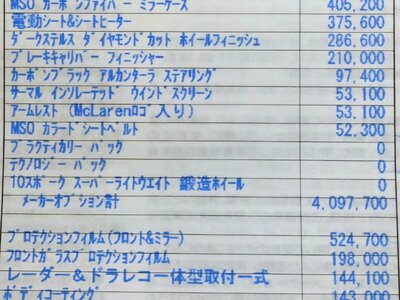 MSO ｶｰﾎﾞﾝﾌｧｲﾊﾞｰ ﾐﾗｰｹｰｽ 405,200
電動ｼｰﾄ&ｼｰﾄﾋｰﾀｰ 375,600
ﾀﾞｰｸｽﾃﾙｽ ﾀﾞｲﾔﾓﾝﾄﾞｶｯﾄ ﾎｲｰﾙﾌｨﾆｯｼｭ 286,600
ﾌﾞﾚｰｷｷｬﾘﾊﾟｰ ﾌｨﾆｯｼｬｰ 210,000
ｶｰﾎﾞﾝﾌﾞﾗｯｸ ｱﾙｶﾝﾀｰﾗ ｽﾃｱﾘﾝｸﾞ 97,400
ｻｰﾏﾙ ｲﾝｿﾚｰﾃｯﾄﾞ ｳｲﾝﾄﾞｽｸﾘｰﾝ 53,100
ｱｰﾑﾚｽﾄ (McLarenﾛｺﾞ入り) 53,100
MSO ｶﾗｰﾄﾞｼｰﾄﾍﾞﾙﾄ 52,300
ﾌﾟﾗｸﾃｨｶﾘｰ ﾊﾟｯｸ 0
ﾃｸﾉﾛｼﾞｰ ﾊﾟｯｸ 0
10ｽﾎﾟｰｸ ｽｰﾊﾟｰﾗｲﾄｳｴｲﾄ 鍛造ﾎｲｰﾙ 0
ﾒｰｶｰｵﾌﾟｼｮﾝ計 4,097,700
ﾌﾟﾛﾃｸｼｮﾝﾌｨﾙﾑ(ﾌﾛﾝﾄ&ﾐﾗｰ) 524,700
ﾌﾛﾝﾄｶﾞﾗｽﾌﾟﾛﾃｸｼｮﾝﾌｨﾙﾑ 198,000
レーダー＆ドラレコ一体型取付一式 144,100
ﾎﾞﾃﾞｨｺｰﾃｨﾝｸﾞ 143,000